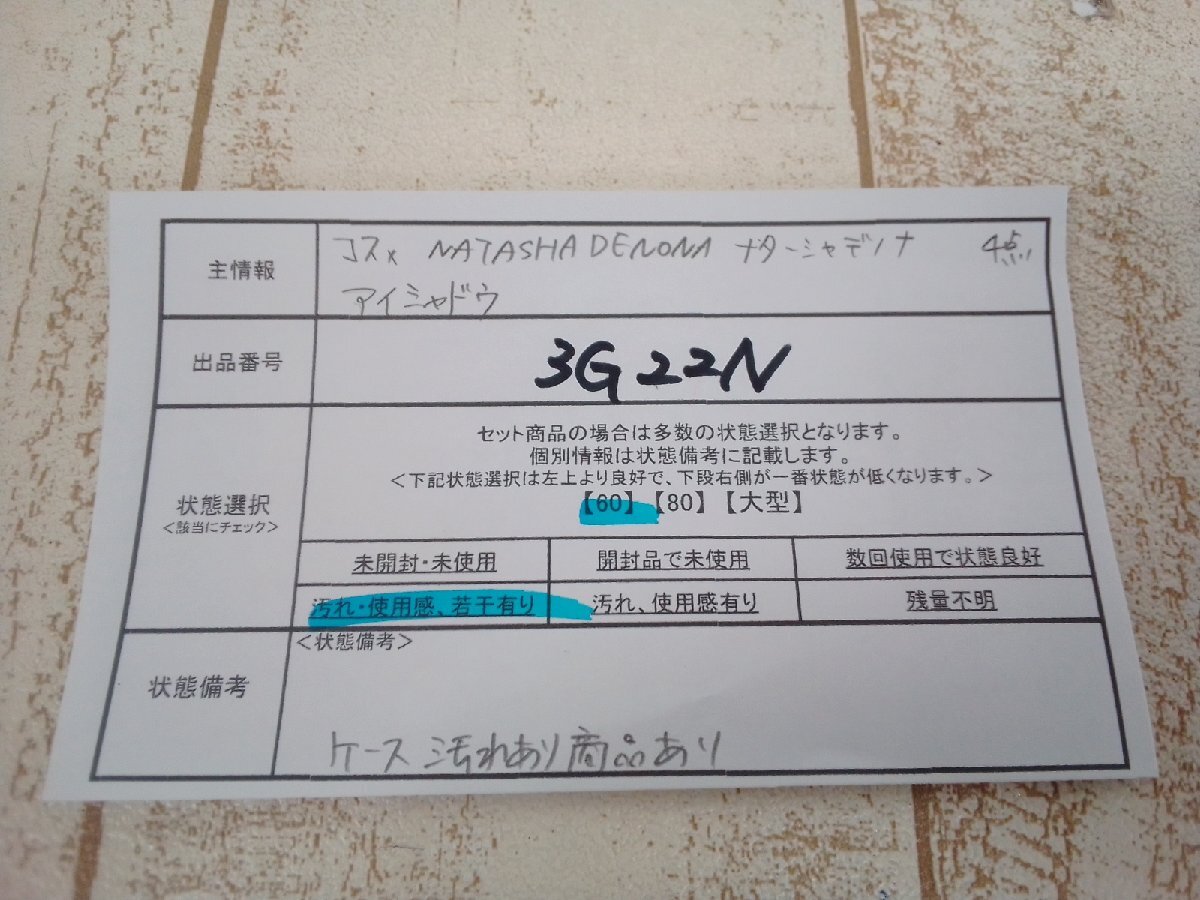 主情報
コスメ NATASHA DENONA ナターシャデノナ 4点
アイシャドウ
出品番号
3G22N
状態選択
<該当にチェック>
セット商品の場合は多数の状態選択となります。
個別情報は状態備考に記載します。
<下記状態選択は左上より良好で、下段右側が一番状態が低くなります。>
【60】【80】【大型】
未開封・未使用 開封品で未使用 数回使用で状態良好
汚れ・使用感、若干有り 汚れ、使用感有り 残量不明
状態備考
<状態備考>
ケース汚れあり商品あり